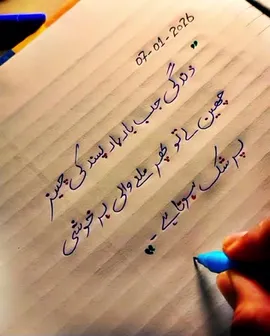 07-01-2026
زندگی جب بار بار پسند کی چیز
چھین لے تو پھر ملنے والی ہر خوشی
پر شک ہوتا ہے۔